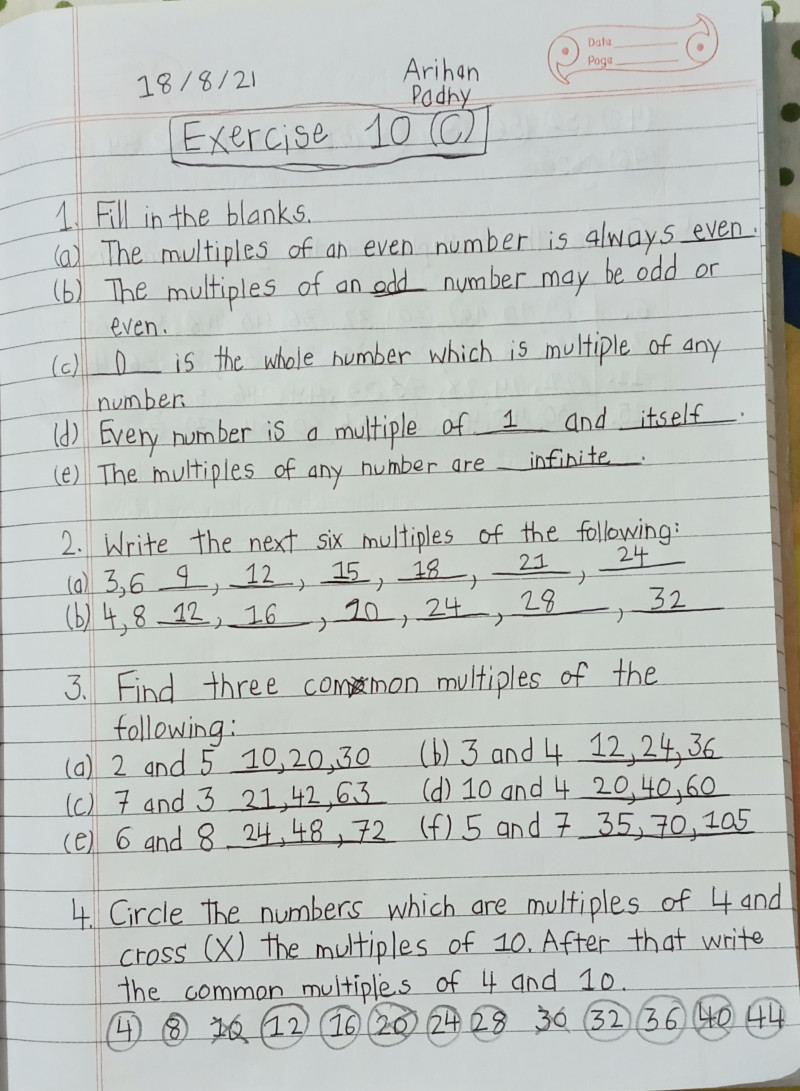 Date
Page
18/8/21 Arihan
Padhy
Exercise 10 (C)
1. Fill in the blanks.
(a) The multiples of an even number is always even.
(b) The multiples of an odd number may be odd or
even.
(c) 0 is the whole number which is multiple of any
number.
(d) Every number is a multiple of 1 and itself.
(e) The multiples of any number are infinite.
2. Write the next six multiples of the following:
(a) 3,6 9, 12, 15, 18, 21, 24
(b) 4,8 12, 16, 20, 24, 28, 32
3. Find three common multiples of the
following:
(a) 2 and 5 10,20,30 (b) 3 and 4 12,24,36
(c) 7 and 3 21,42,63 (d) 10 and 4 20,40,60
(e) 6 and 8 24,48,72 (f) 5 and 7 35,70,105
4. Circle the numbers which are multiples of 4 and
cross (X) the multiples of 10. After that write
the common multiples of 4 and 10.
4 8 10 12 16 20 24 28 30 32 36 40 44